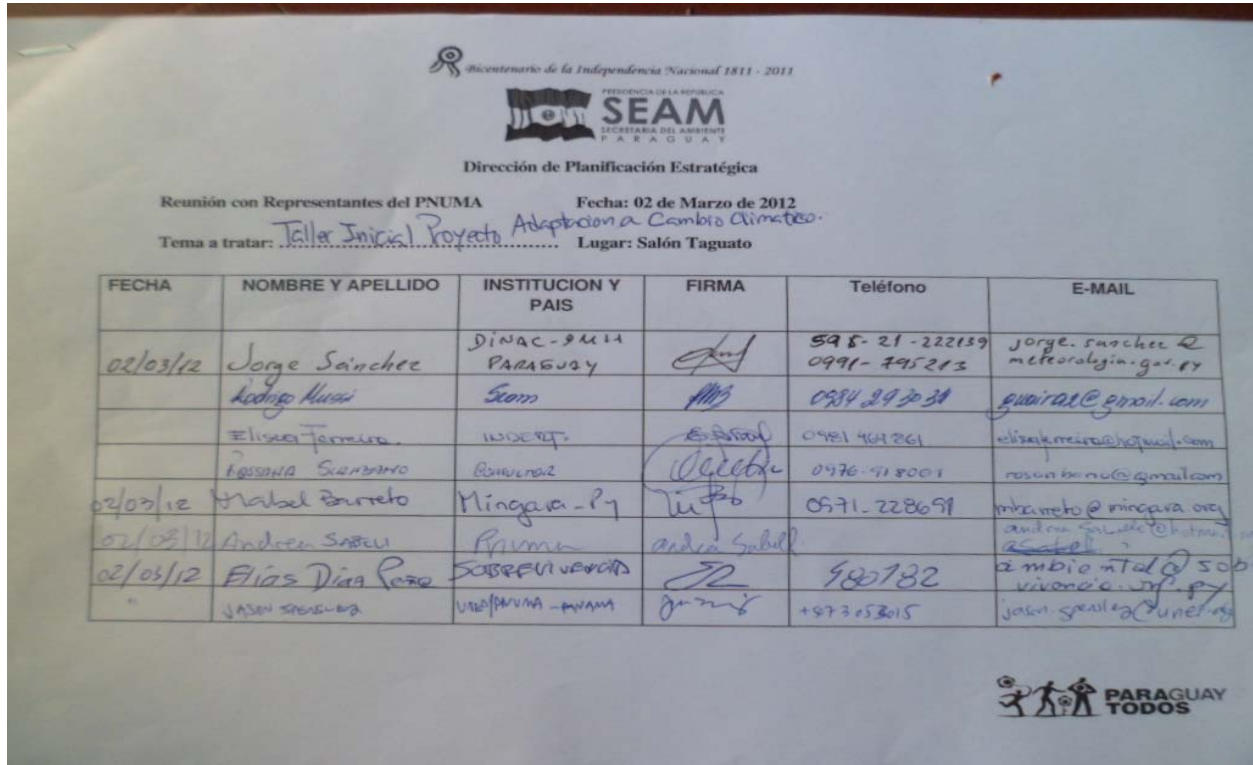 Bicentenario de la Independencia Nacional 1811 - 2011
PRESIDENCIA DE LA REPUBLICA
SEAM
SECRETARIA DEL AMBIENTE
PARAGUAY
Dirección de Planificación Estratégica
Reunión con Representantes del PNUMA Fecha: 02 de Marzo de 2012
Tema a tratar: Taller Inicial Proyecto Adaptacion a Cambio Climatico.
Lugar: Salón Taguato
FECHA NOMBRE Y APELLIDO INSTITUCION Y PAIS FIRMA Teléfono E-MAIL
02/03/12 Jorge Sánchez DINAC- PARAGUAY 595-21-222139 0991-795213 jorge.sanchez@ meteorologia.gov.py
Rodrigo Mussi Seam 0984 293031 guairaz@gmail.com
Elisea Ferreira INDERT.
Rossana
02/03/12 Mabel Barreto Mingara-Py 0971-228691 mbarreto@mingara.org
02/03/12 Andrea Sabelli Pnuma andrea Sabelli
02/03/12 Elías Díaz Peña SOBREVIVENCIA 480182 ambiental@sob vivencia.org.py
" JASON PNUMA - PANAMA
PARAGUAY
TODOS